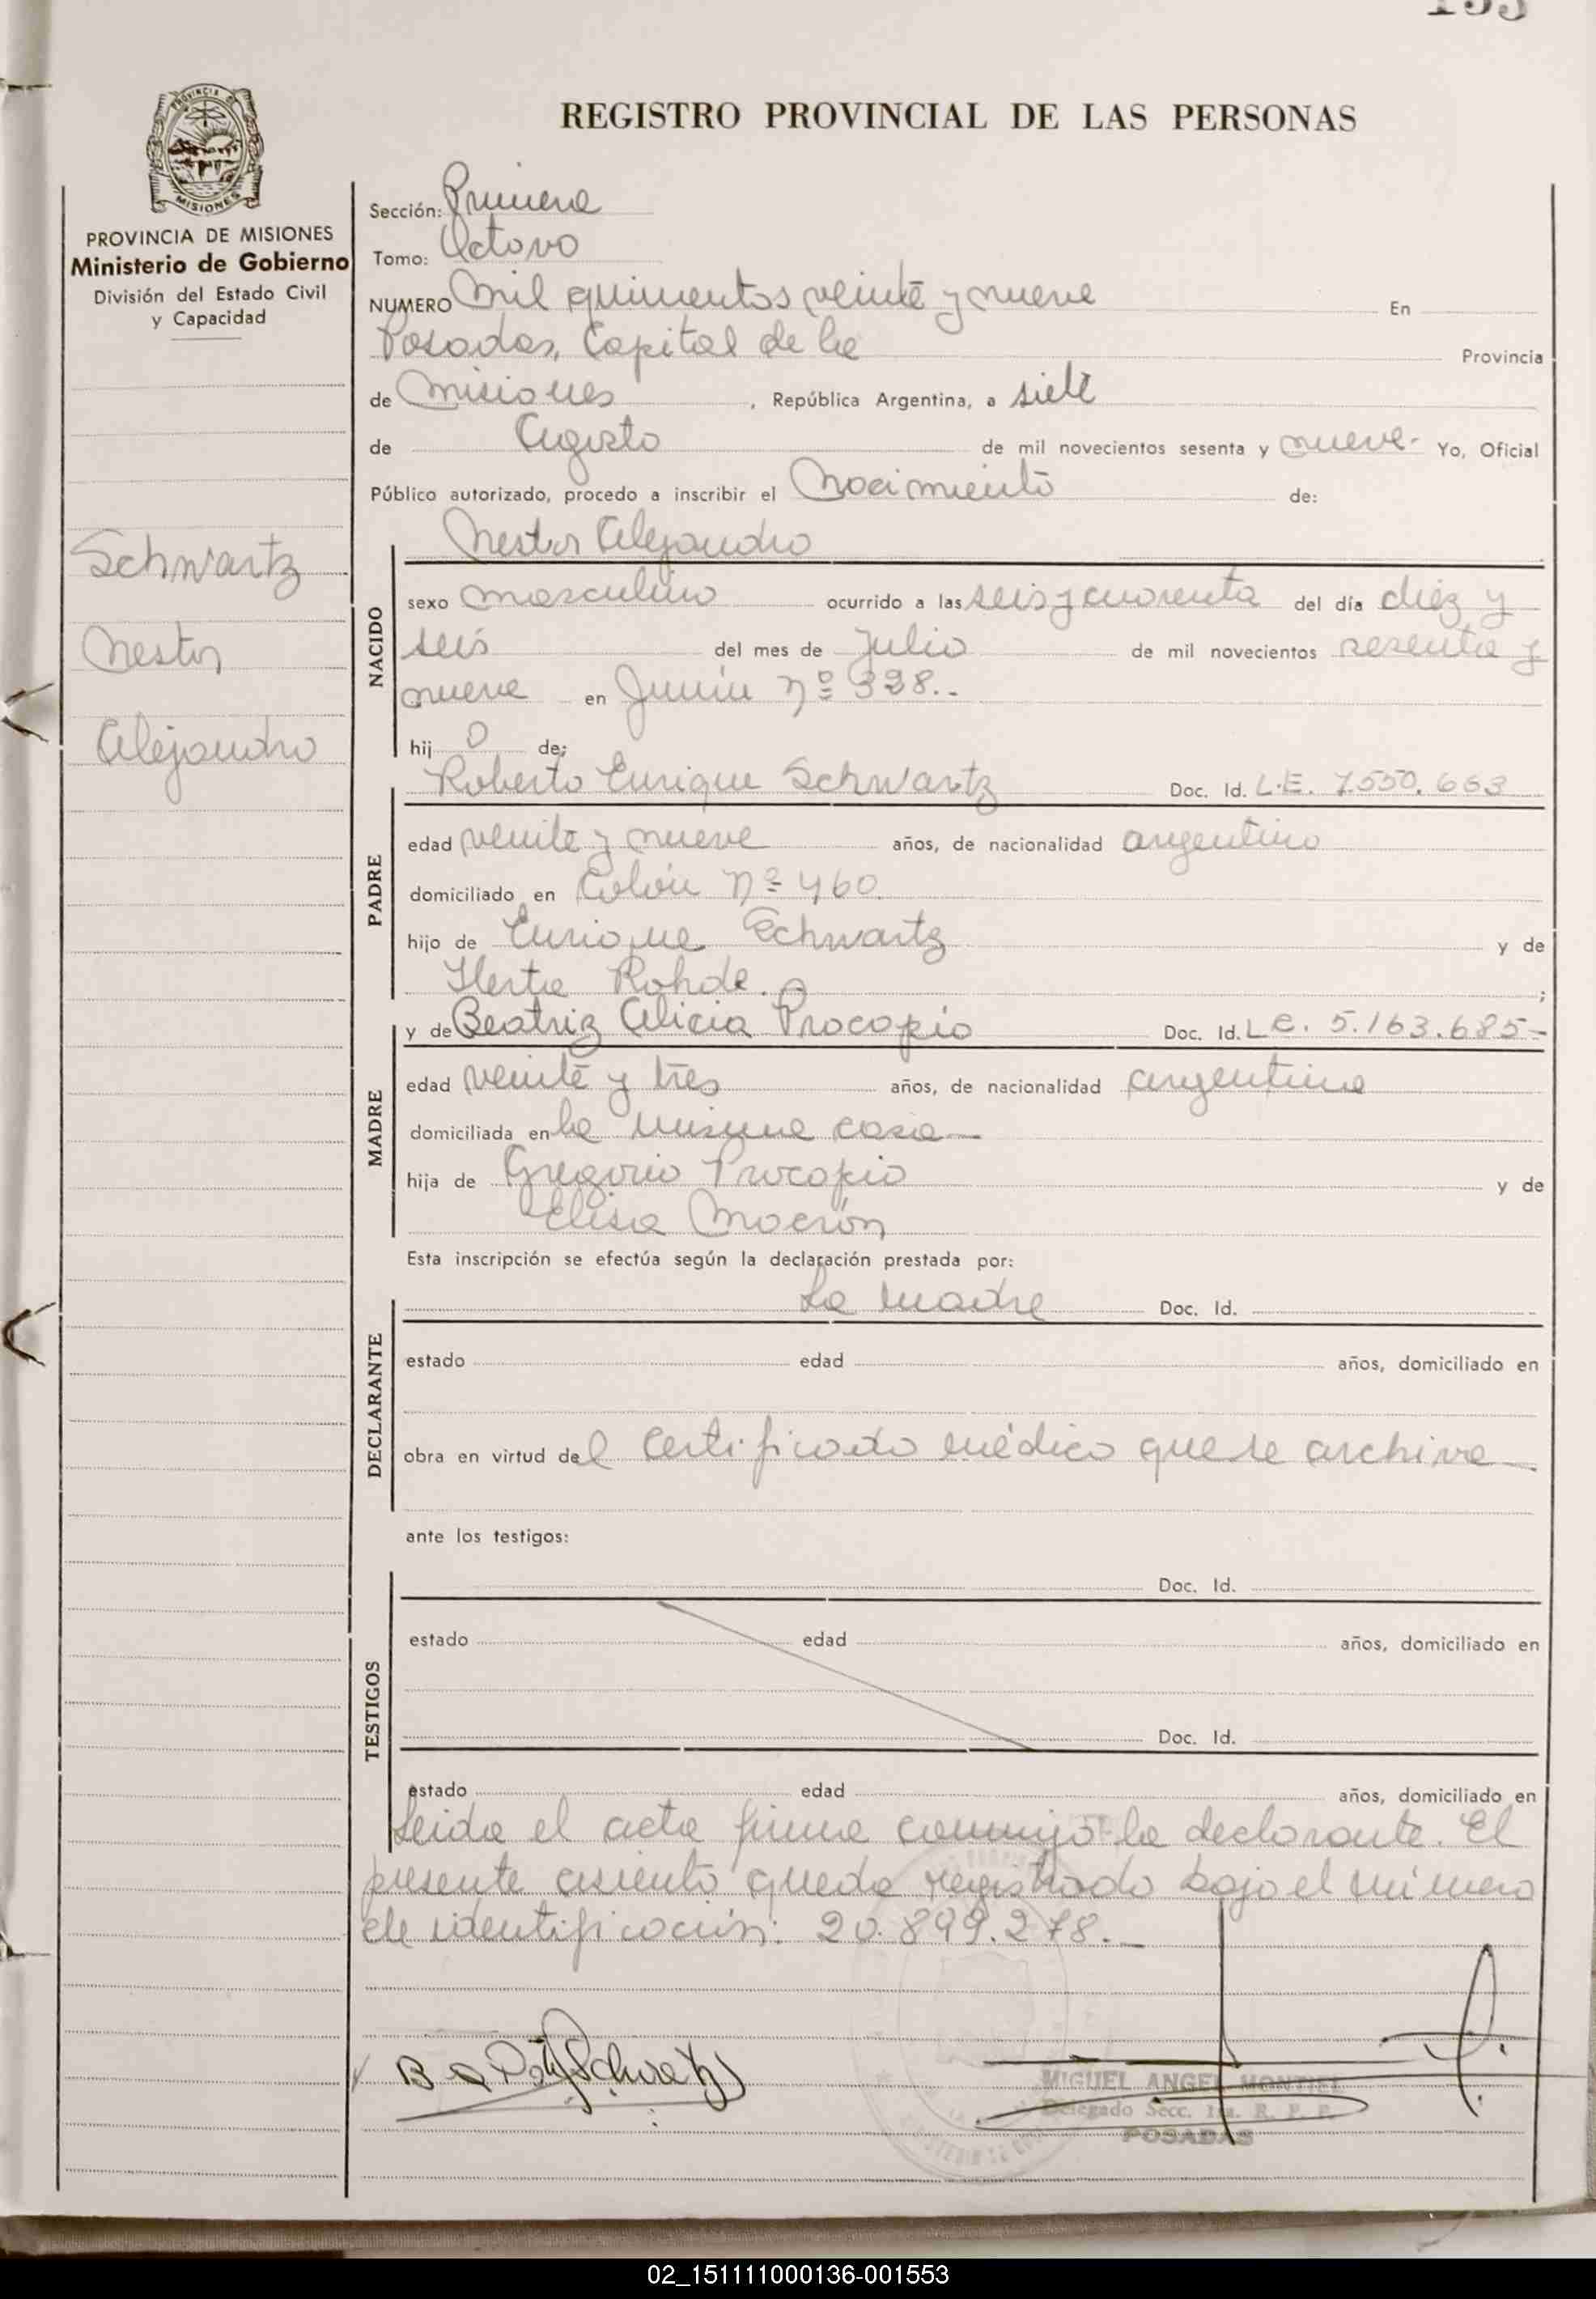 REGISTRO PROVINCIAL DE LAS PERSONAS
PROVINCIA DE
MISIONES
PROVINCIA DE MISIONES
Ministerio de Gobierno
División del Estado Civil
y Capacidad
Schwartz
Nestor
Alejandro
Sección: Primera
Tomo: Octavo
NUMERO Mil quinientos veinte y nueve En
Posadas, Capital de la Provincia
de Misiones, República Argentina, a siete
de Agosto de mil novecientos sesenta y nueve- Yo, Oficial
Público autorizado, procedo a inscribir el Nacimiento de:
Nestor Alejandro
NACIDO
sexo masculino ocurrido a las seis y cuarenta del día diez y
seis del mes de Julio de mil novecientos sesenta y
nueve en Junín nº 398.-
hij o de:
Roberto Enrique Schwartz Doc. Id. L.E. 7.550.663
PADRE
edad veinte y nueve años, de nacionalidad argentino
domiciliado en Colón nº 460.
hijo de Enrique Schwartz y de
Herta Rohde. ;
y de Beatriz Alicia Procopio Doc. Id. L C. 5.163.685-
MADRE
edad veinte y tres años, de nacionalidad argentina
domiciliada en la misma casa-
hija de Gregorio Procopio y de
Elisa
Esta inscripción se efectúa según la declaración prestada por:
La madre Doc. Id.
DECLARANTE
estado edad años, domiciliado en
obra en virtud del Certificado médico que se archiva-
ante los testigos:
TESTIGOS
Doc. Id.
estado edad años, domiciliado en
Doc. Id.
estado edad años, domiciliado en
Leida el acta firma conmigo la declarante. El
presente asiento queda registrado bajo el número
de identificación: 20.899.278.-
MIGUEL ANGEL MONTIEL
Delegado Secc. 1ra. R. P. P.
POSADAS
02_151111000136-001553